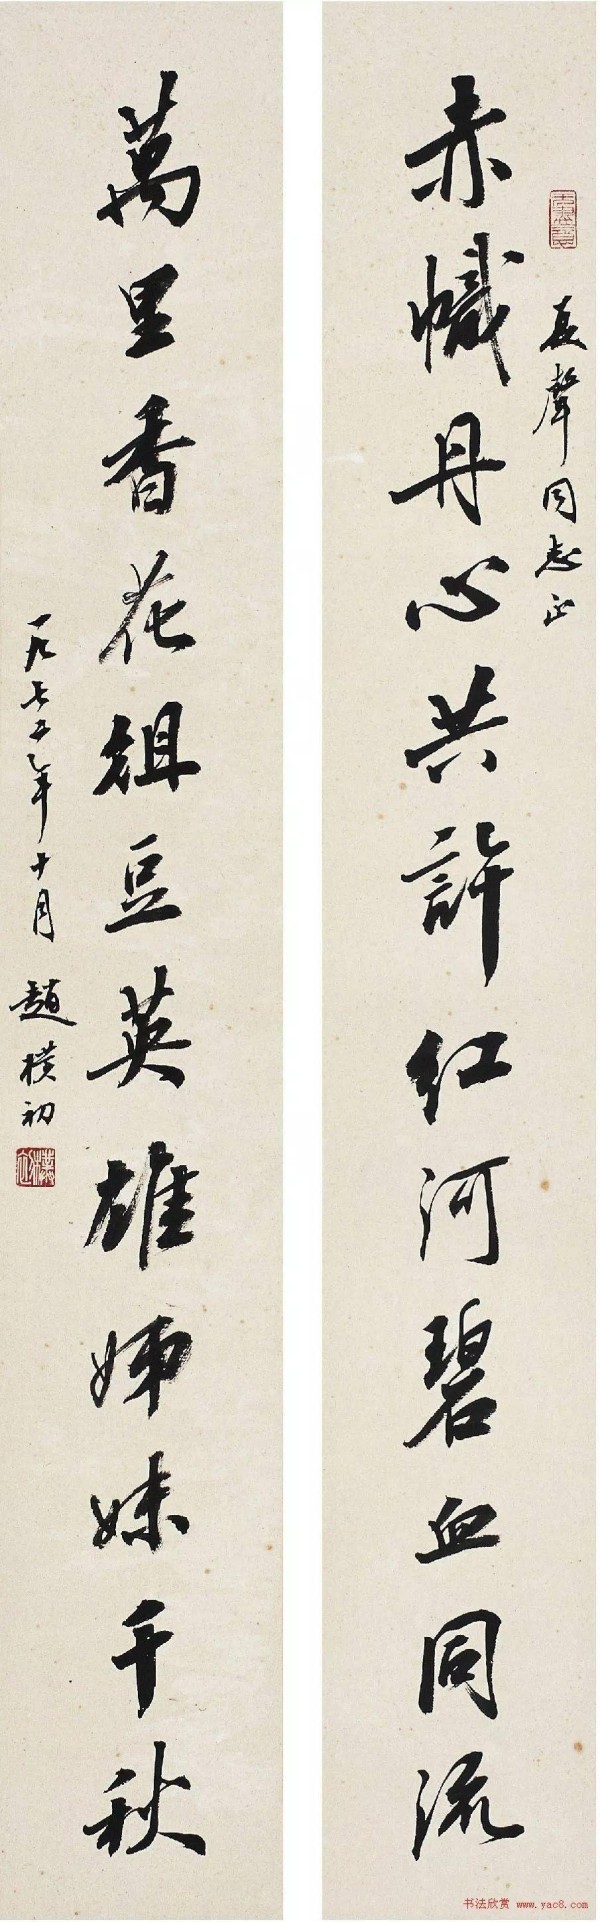 良聲同志正
赤幟丹心共許紅河碧血同流
萬里香花俎豆英雄姊妹千秋
一九七五年十月 趙樸初
书法欣赏 www.yac8.com